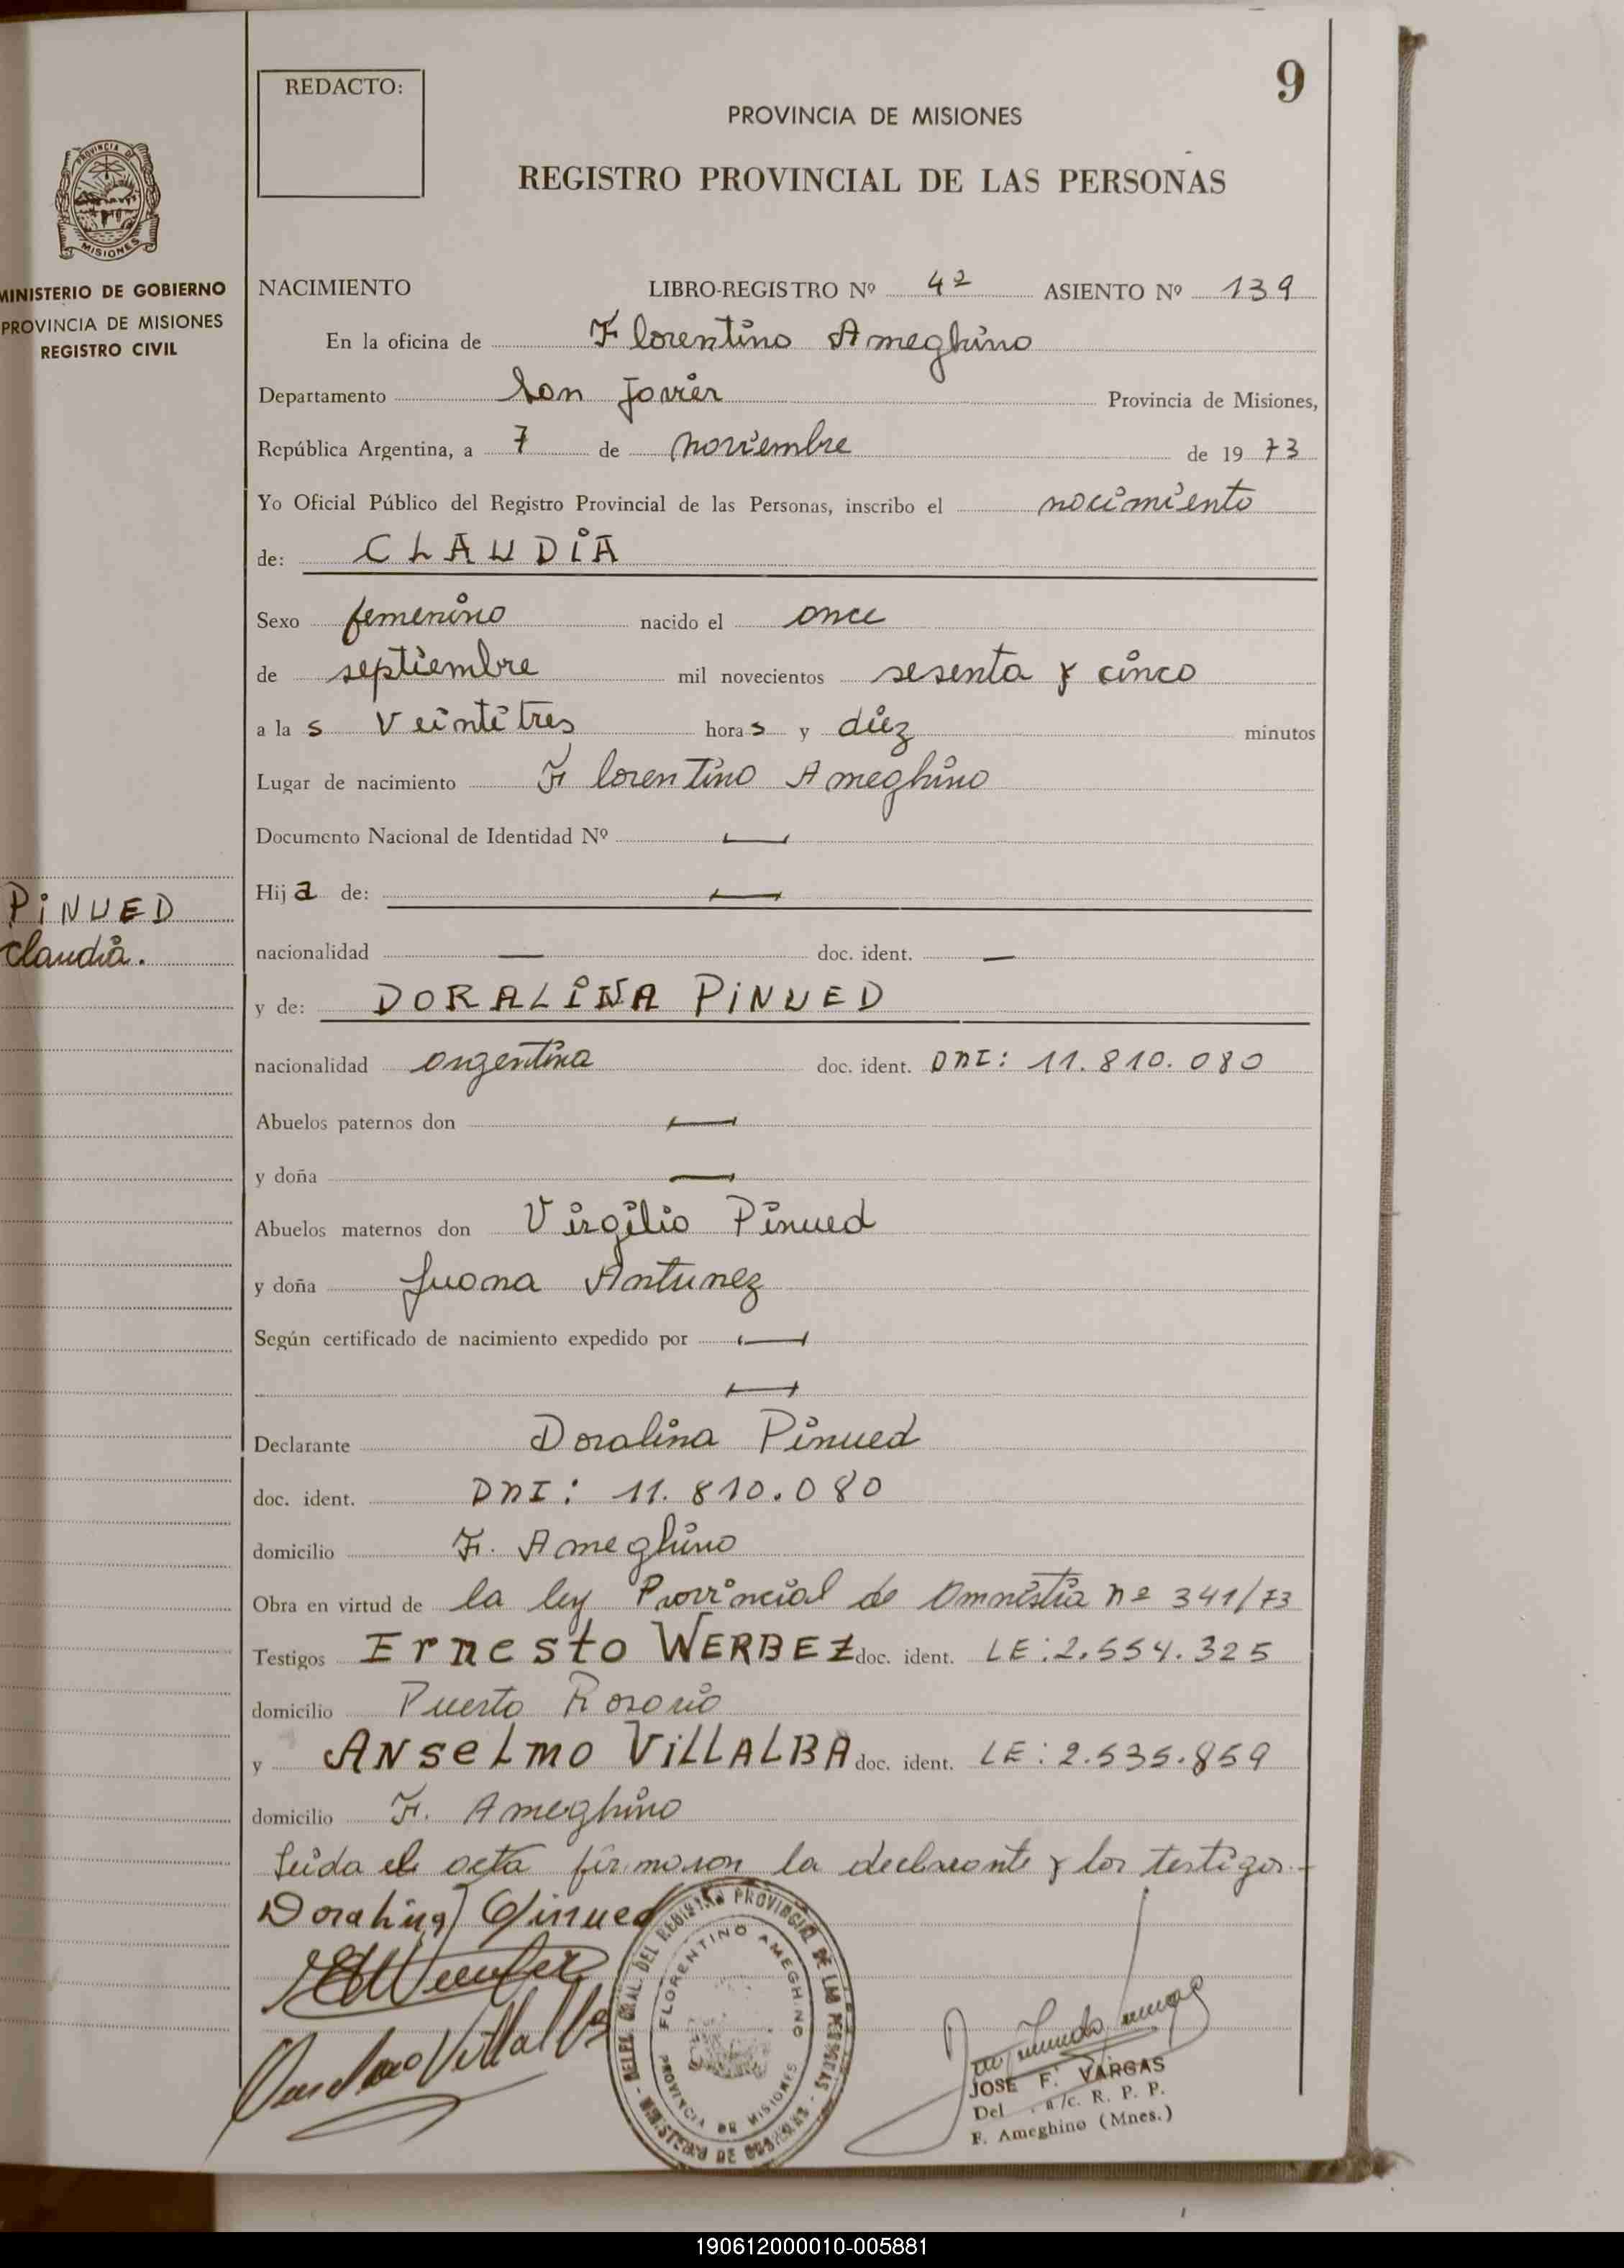 9
REDACTO:
PROVINCIA DE MISIONES
REGISTRO PROVINCIAL DE LAS PERSONAS
PROVINCIA DE
MISIONES
MINISTERIO DE GOBIERNO
PROVINCIA DE MISIONES
REGISTRO CIVIL
NACIMIENTO LIBRO-REGISTRO Nº 42 ASIENTO Nº 139
En la oficina de Florentino Ameghino
Departamento San Javier Provincia de Misiones,
República Argentina, a 7 de noviembre de 19 73
Yo Oficial Público del Registro Provincial de las Personas, inscribo el nacimiento
de: CLAUDIA
Sexo femenino nacido el once
de septiembre mil novecientos sesenta y cinco
a la s veintitres hora s y diez minutos
Lugar de nacimiento Florentino Ameghino
Documento Nacional de Identidad Nº —
Hij a de: —
PINUED
Claudia.
nacionalidad — doc. ident. —
y de: DORALINA PINUED
nacionalidad argentina doc. ident. DNI: 11.810.080
Abuelos paternos don —
y doña —
Abuelos maternos don Virgilio Pinued
y doña Juana Antunez
Según certificado de nacimiento expedido por —
—
Declarante Doralina Pinued
doc. ident. DNI: 11.810.080
domicilio F. Ameghino
Obra en virtud de la ley Provincial de Amnistia nº 341/73
Testigos Ernesto WERBEZ doc. ident. LE: 2.554.325
domicilio Puerto Rosario
y ANSELMO VILLALBA doc. ident. LE: 2.535.859
domicilio F. Ameghino
Leida el acta firmaron la declarante y los testigos.-
Doralina Pinued
MINISTERIO DE GOBIERNO - DELEG. GRAL. DEL REGISTRO PROVINCIAL DE LAS PERSONAS -
FLORENTINO AMEGHINO
PROVINCIA DE MISIONES
JOSE F. VARGAS
Del . a/c. R. P. P.
F. Ameghino (Mnes.)
190612000010-005881